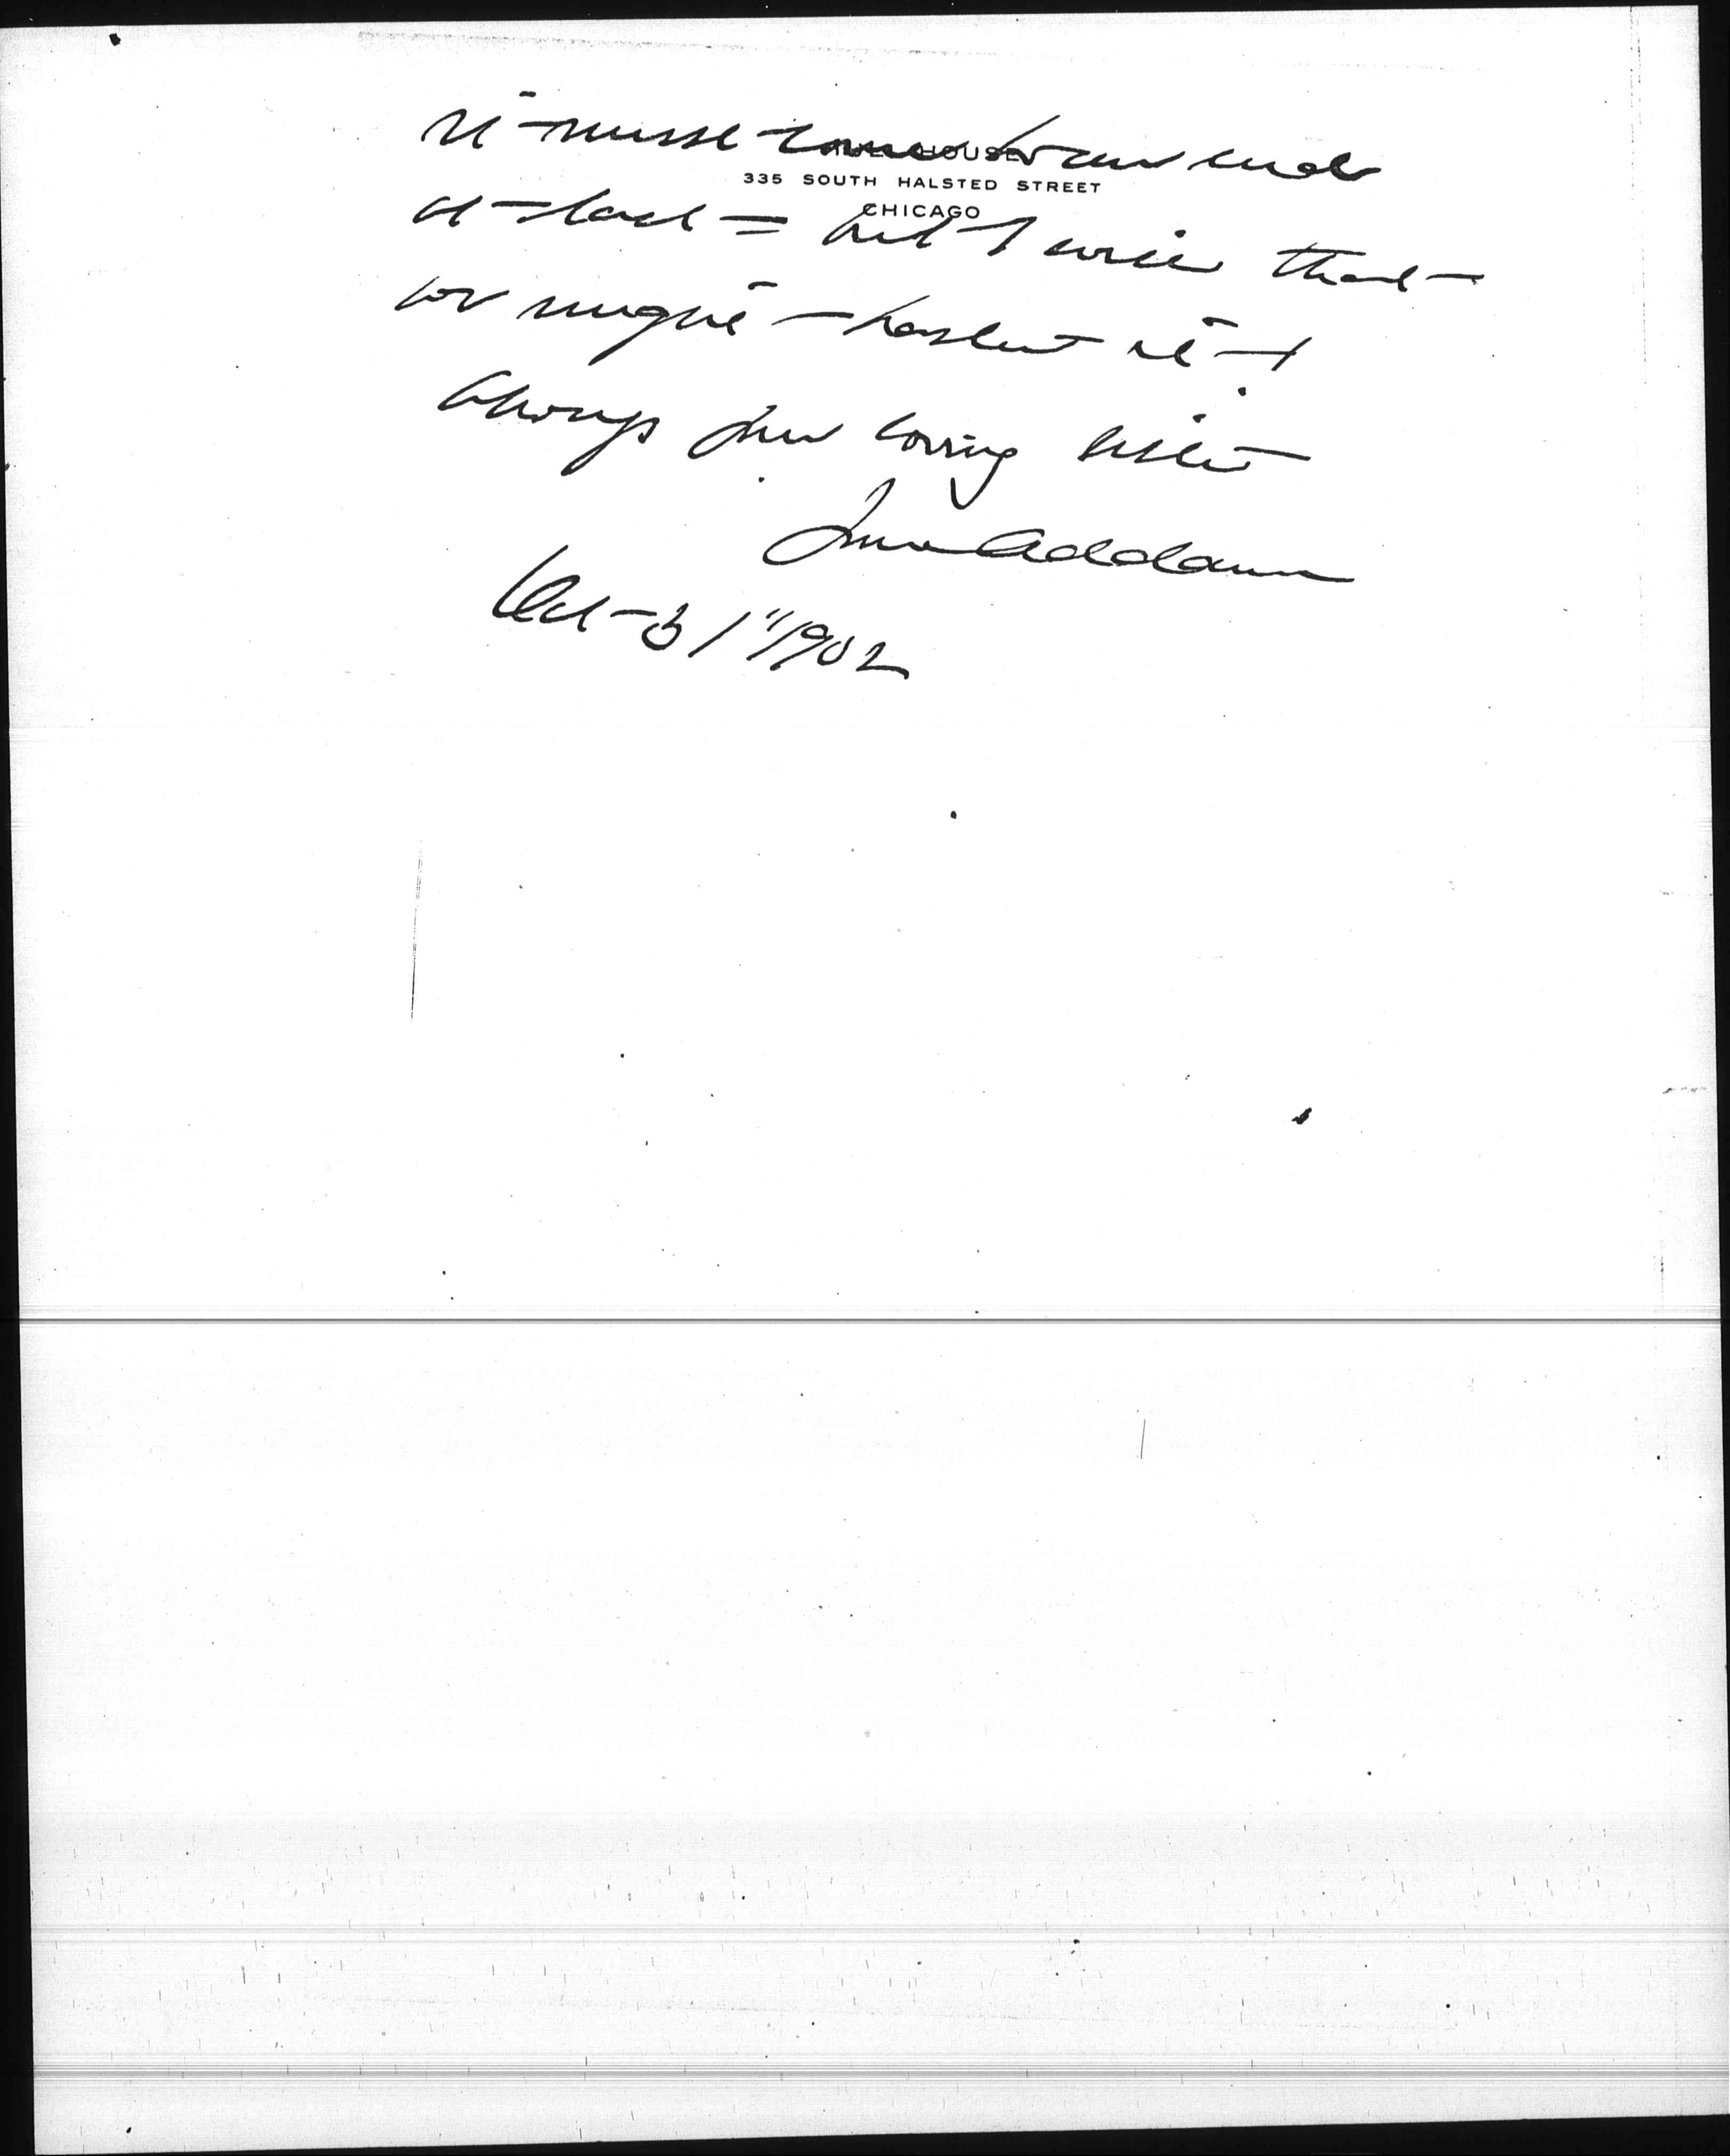 it must come to an end
HULL HOUSE
335 SOUTH HALSTED STREET
CHICAGO
at last = but I wish that
we might hasten it I
Always your loving sister
Jane Addams
Oct 31" 1902